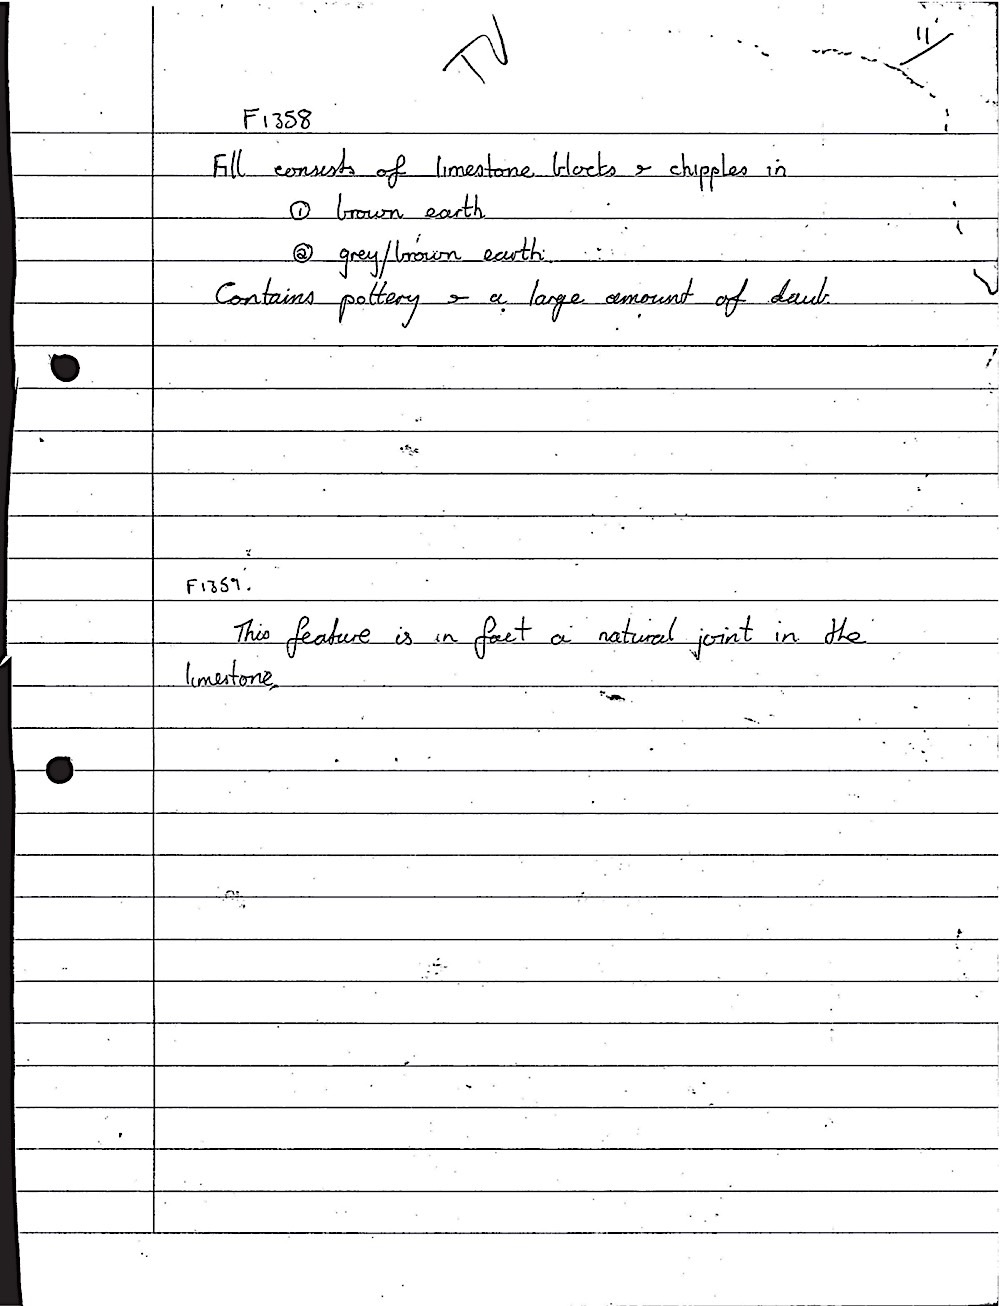 TV
11
F1358
Fill consists of limestone blocks & chipples in
① brown earth
② grey/brown earth.
Contains pottery & a large amount of daub.
F1359.
This feature is in fact a natural joint in the
limestone.